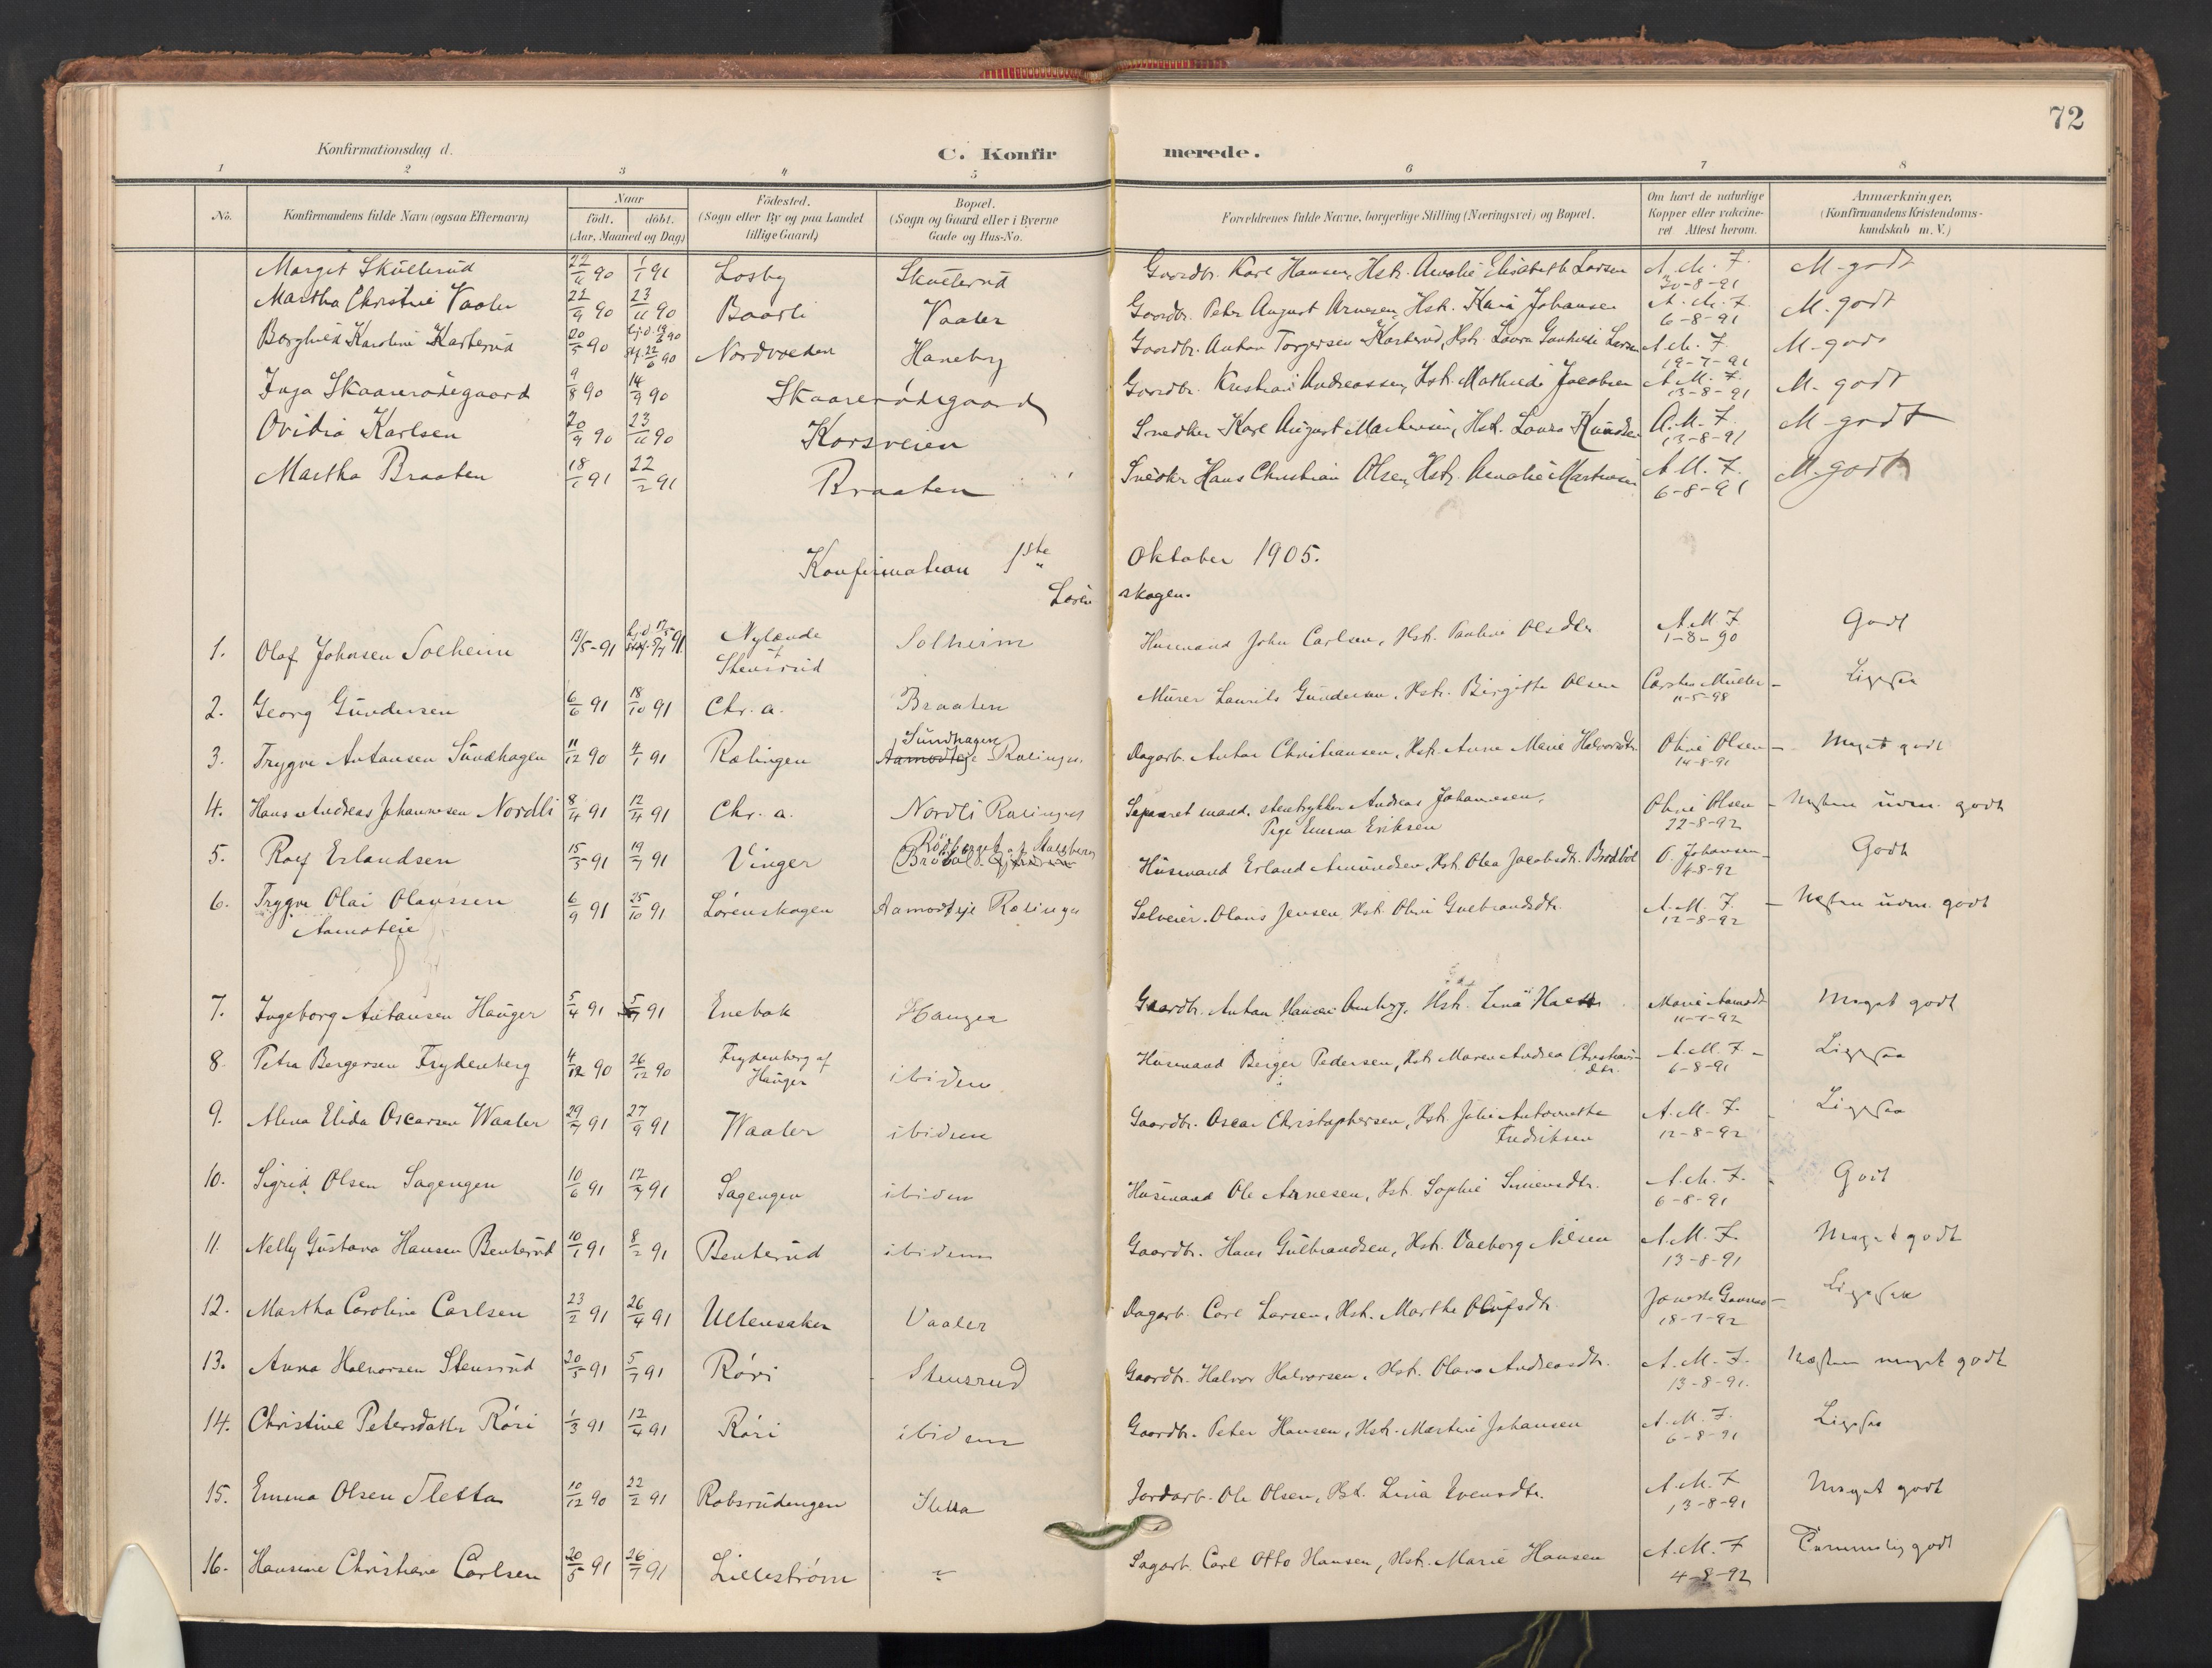 72
Konfirmationsdag d.
C. Konfirmerede.
1 2 3 4 5 6 7 8
No.
Konfirmandens fulde Navn (ogsaa Efternavn)
Naar
födt. döbt.
(Aar, Maaned og Dag)
Födested.
(Sogn eller By og paa Landet
tillige Gaard)
Bopæl.
(Sogn og Gaard eller i Byerne
Gade og Hus-No.
Forældrenes fulde Navne, borgerlige Stilling (Næringsvei) og Bopæl.
Om havt de naturlige
Kopper eller vakcine-
ret Attest herom.
Anmærkninger.
(Konfirmandens Kristendoms-
kundskab m. V.)
Marget Skullerud 22/11 90 1/1 91 Losby Skullerud Gaardbr. Karl Hansen, Hstr. Amalie Elisabeth Larsen A. M. F. 30-8-91 M-godt
Martha Christine Vaaler 22/9 90 23/11 90 Baarli Vaaler Gaardbr. Peter August Arnesen, Hstr. Karen Johansen A. M. F. 6-8-91 M.godt
Borghild Karoline Karterud 20/5 90 Nordvreden Haneby Gaardbr. Anton Torgersen Karterud, Hstr. Laura Gunhilde Larsen A. M. F. 19-7-91 M-godt
Inga Skaarerødegaard 9/8 90 14/9 90 Skaarerødegaard Gaardbr. Kristian Andreassen, Hstr. Mathilde Jacobsen A. M. F. 13-8-91 M. godt
Ovidia Karlsen 20/9 90 23/11 90 Korsveien Snedker Karl August Mathiesen, Hstr. Laura Knudsen A. M. F. 13-8-91 M-godt
Martha Braaten 18/1 91 22/2 91 Braaten Snedker Hans Christian Olsen, Hstr. Amalie Martinsen A. M. F. 6-8-91 M-godt
Konfirmation 1ste Oktober 1905.
Lørenskogen.
1. Olaf Johnsen Solheim 13/5-91 hj.d 17/5 91 Nylænde af Stensrud Solheim Husmand John Carlsen, Hstr. Pauline Olsdtr. A. M. F. 1-8-90 Godt
2. Georg Gundersen 6/6 91 18/10 91 Chr. a. Braaten Murer Laurits Gundersen, Hstr. Birgitte Olsen Carsten Müller 11-5-98 Ligesaa
3. Trygve Antonsen Sundhagen 11/12 90 4/1 91 Rælingen Sundhagen Aamodteje Rælingen Dagarb. Anton Christiansen, Hstr. Anne Marie Halvorsdtr. Oline Olsen 14-8-91 Meget godt
4. Hans Andreas Johannesen Nordli 8/4 91 12/4 91 Chr. a. Nordli Rælingen Separeret mand. stentrykker Andreas Johannesen,
Pige Emma Eriksen Oline Olsen 22-8-92 Næsten udm. godt
5. Rolf Erlandsen 15/5 91 19/7 91 Vinger Husmand Erland Amundsen, Hstr. Olea Jacobsdtr. Brødbøl O. Johansen 4-8-92 Godt
6. Trygve Olai Olaussen
Aamoteie 6/9 91 25/10 91 Lørenskogen Aamodteje Rælingen Selveier Olaus Jensen Hstr. Oline Gulbrandsdtr. A. M. F. 12-8-92 Næsten udm. godt
7. Ingeborg Antonsen Hauger 5/4 91 5/7 91 Enebak Hauger Gaardbr. Anton Hansen Amberg, Hstr. Lina Marie Aamodt 11-7-92 Meget godt
8. Petra Bergersen Frydenberg 4/12 90 26/12 90 Frydenberg af
Hauger ibidem Husmand Berger Pedersen, Hstr. Maren Andrea Christians-
dtr. A. M. F. 6-8-91 Ligesaa
9. Alma Elida Oscarsen Waaler 29/7 91 27/9 91 Waaler ibidem Gaardbr. Oscar Christophersen, Hstr. Julie Antonette
Fredriksen A. M. F. 12-8-92 Ligesaa
10. Sigrid Olsen Sagengen 10/6 91 12/7 91 Sagengen ibidem Husmand Ole Arnesen, Hstr. Sophie Simensdtr. A. M. F. 6-8-91 Godt
11. Nelly Gustava Hansen Benterud 10/1 91 8/2 91 Benterud ibidem Gaardbr. Hans Gulbrandsen, Hstr. Valborg Nilsen A. M. F. 13-8-91 Meget godt
12. Martha Caroline Carlsen 23/2 91 26/4 91 Ullensaker Vaaler Dagarb. Carl Larsen, Hstr. Marthe Olufsdtr. 18-7-92 Ligesaa
13. Anna Halvorsen Stensrud 20/5 91 5/7 91 Röri Stensrud Gaardbr. Halvor Halvorsen, Hstr. Olava Andreasdtr. A. M. F. 13-8-91. Næsten meget godt
14. Christine Petersdatter Röri 1/3 91 12/4 91 Röri ibidem Gaardbr. Peter Hansen, Hstr. Martine Johansen A. M. F. 6-8-91 Ligesaa
15. Emma Olsen Sletta 10/12 90 22/2 91 Robsrudengen Sletta Jordarb. Ole Olsen, Hstr. Lina Evensdtr. A. M. F. 13-8-91 Meget godt
16. Hansine Christiane Carlsen 20/5 91 26/7 91 Lilleström Sagarb. Carl Otto Hansen, Hstr. Marie Hansen A. M. F. 4-8-92 Temmelig godt